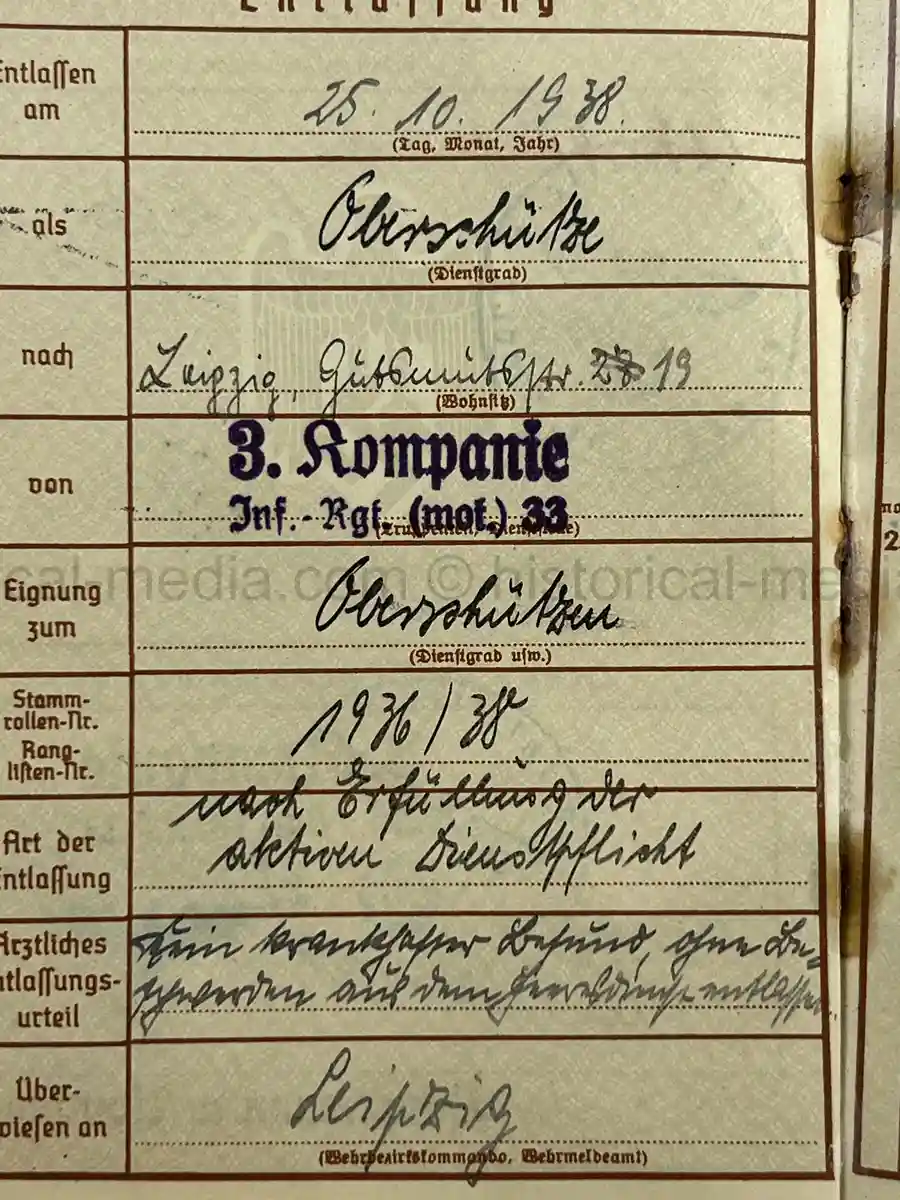 Entlassung
Entlassen am
25. 10. 1938.
(Tag, Monat, Jahr)
als
Oberschütze
(Dienstgrad)
nach
Leipzig, Gutsmutsstr. 19
(Wohnsitz)
von
3. Kompanie
Inf.-Rgt. (mot.) 33
(Truppenteil, Dienststelle)
Eignung zum
Oberschützen
(Dienstgrad usw.)
Stamm-
rollen-Nr.
Rang-
listen-Nr.
1936/38
Art der
Entlassung
nach Erfüllung der
aktiven Dienstpflicht
Ärztliches
Entlassungs-
urteil
Kein krankhafter Befund, ohne Be-
schwerden aus dem Heeresdienst entlassen.
Über-
wiesen an
Leipzig
(Wehrbezirkskommando, Wehrmeldeamt)
cal-media.com © historical-me